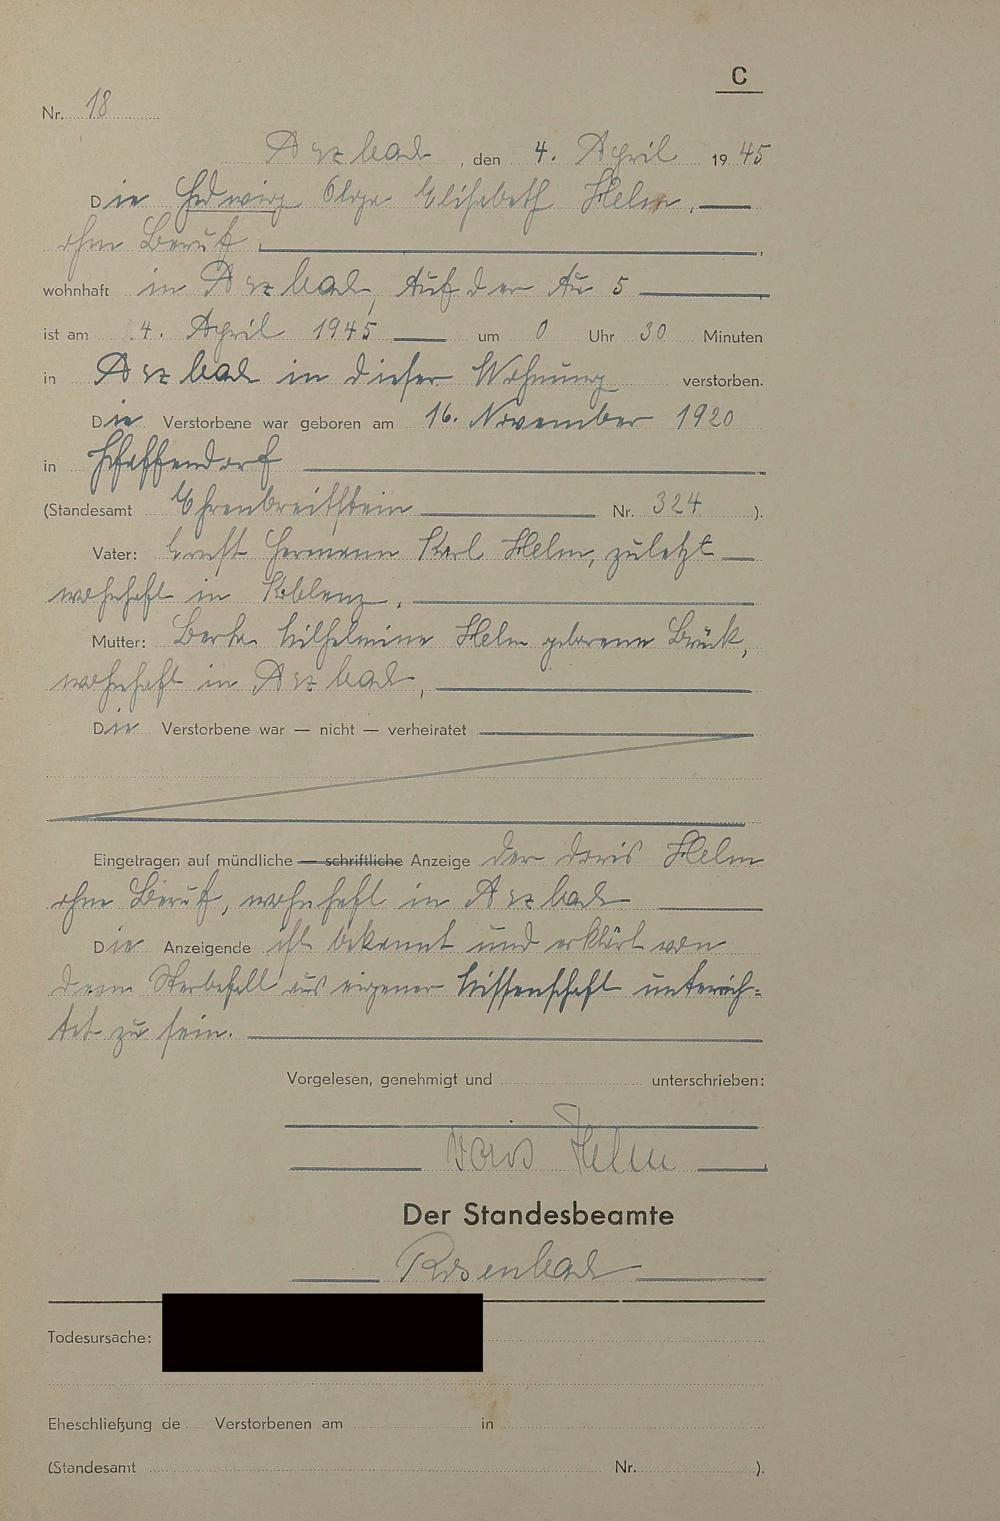 C
Nr. 18
Arzbach, den 4. April 1945
Die Hedwig Olga Elisabeth Helm,
ohne Beruf,
wohnhaft in Arzbach, Auf der Au 5
ist am 4. April 1945 um 0 Uhr 30 Minuten
in Arzbach in dieser Wohnung verstorben.
Die Verstorbene war geboren am 16. November 1920
in Pfaffendorf
(Standesamt Ehrenbreitstein Nr. 324 ).
Vater: Ernst Hermann Karl Helm, zuletzt
wohnhaft in Koblenz,
Mutter: Berta Wilhelmine Helm geborene Brück,
wohnhaft in Arzbach,
Die Verstorbene war — nicht — verheiratet
Eingetragen auf mündliche — schriftliche Anzeige der Doris Helm
ohne Beruf, wohnhaft in Arzbach
Die Anzeigende ist bekannt und erklärt von
dem Sterbefall aus eigener Wissenschaft unterrich-
tet zu sein.
Vorgelesen, genehmigt und unterschrieben:
Doris Helm
Der Standesbeamte
Rosenbach
Todesursache:
Eheschließung de Verstorbenen am in
(Standesamt Nr. ).